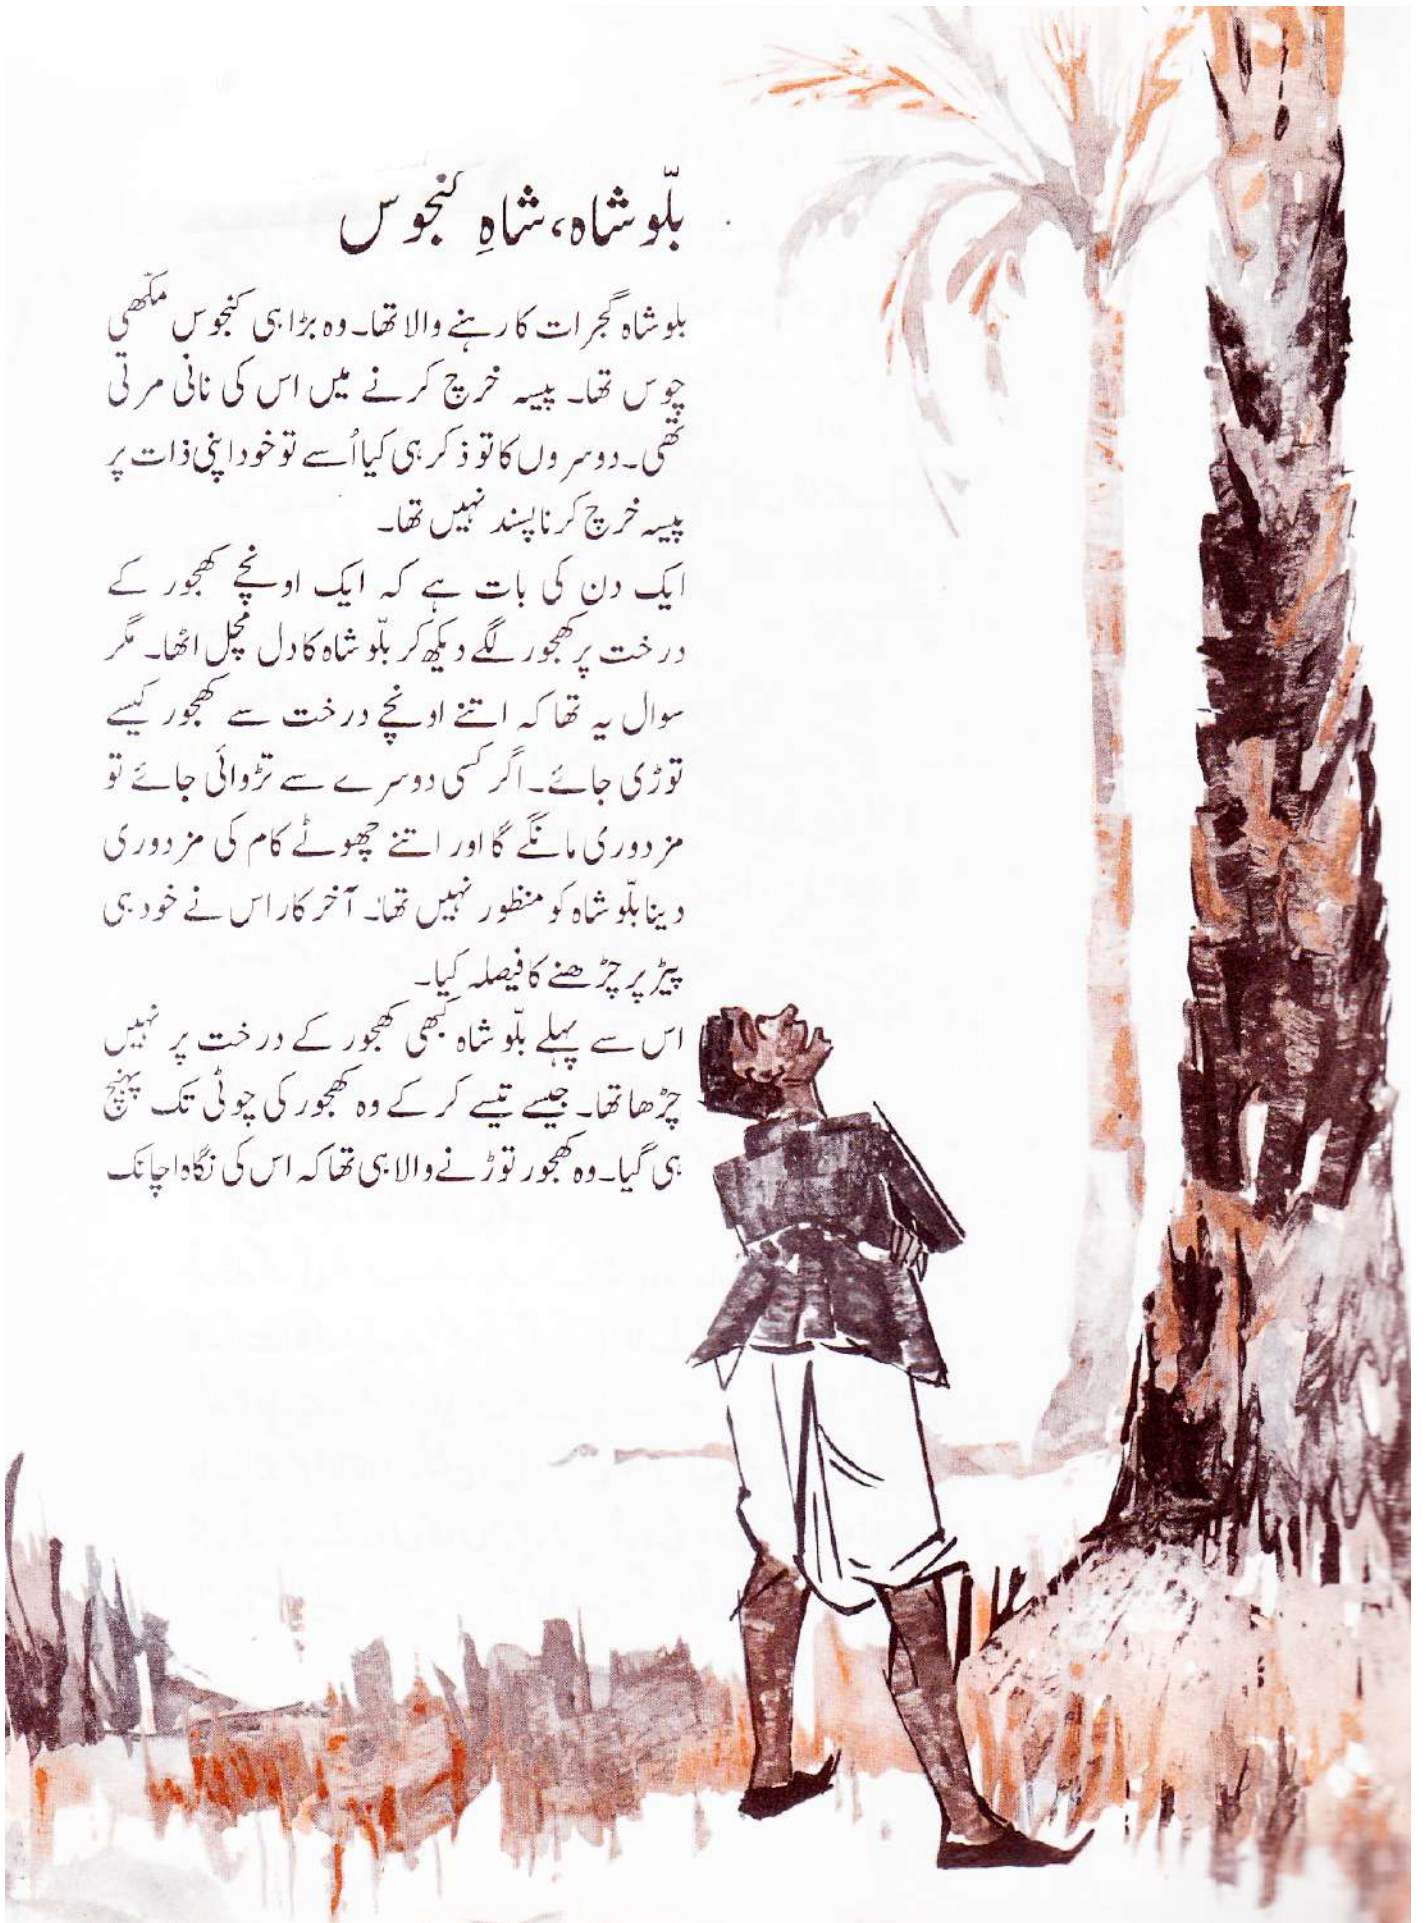 بلّو شاہ، شاہِ کنجوس
بلو شاہ گجرات کا رہنے والا تھا۔ وہ بڑا ہی کنجوس مکھّی
چوس تھا۔ پیسہ خرچ کرنے میں اس کی نانی مرتی
تھی۔ دوسروں کا تو ذکر ہی کیا اُسے تو خود اپنی ذات پر
پیسہ خرچ کرنا پسند نہیں تھا۔
ایک دن کی بات ہے کہ ایک اونچے کھجور کے
درخت پر کھجور لگے دیکھ کر بلّو شاہ کا دل مچل اٹھا۔ مگر
سوال یہ تھا کہ اتنے اونچے درخت سے کھجور کیسے
توڑی جائے۔ اگر کسی دوسرے سے تڑوائی جائے تو
مزدوری مانگے گا اور اتنے چھوٹے کام کی مزدوری
دینا بلّو شاہ کو منظور نہیں تھا۔ آخر کار اس نے خود ہی
پیڑ پر چڑھنے کا فیصلہ کیا۔
اس سے پہلے بلّو شاہ کبھی کھجور کے درخت پر نہیں
چڑھا تھا۔ جیسے تیسے کر کے وہ کھجور کی چوٹی تک پہنچ
ہی گیا۔ وہ کھجور توڑنے والا ہی تھا کہ اس کی نگاہ اچانک